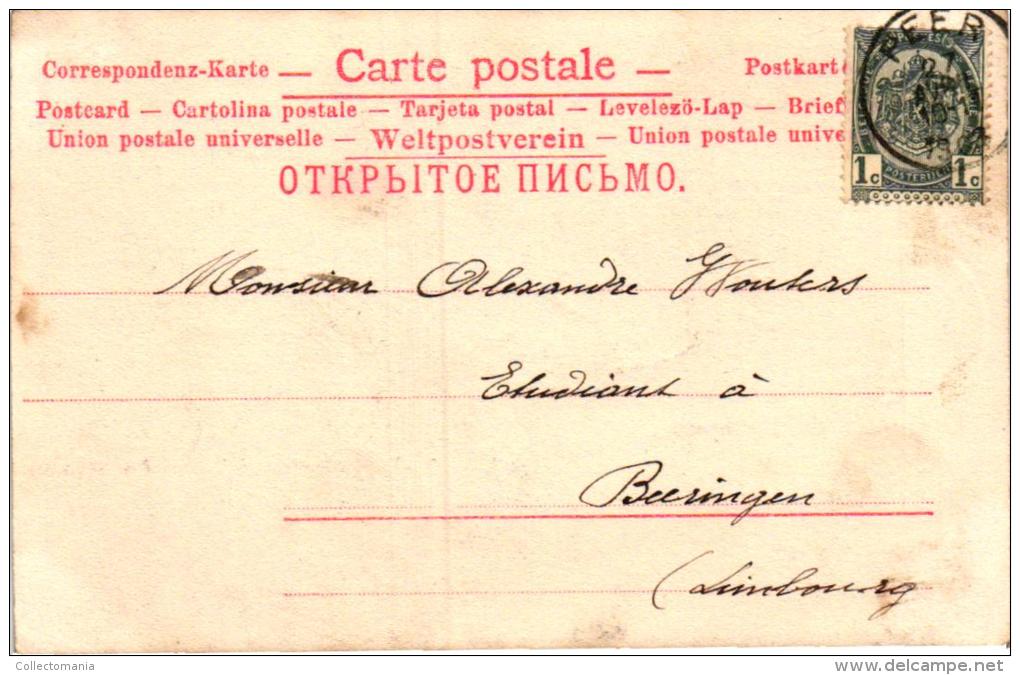 Correspondenz-Karte — Carte postale — Postkart
Postcard — Cartolina postale — Tarjeta postal — Levelezö-Lap — Brief
Union postale universelle — Weltpostverein — Union postale unive
ОТКРЫТОЕ ПИСЬМО.
PEER
1c 1c
POSTERIJEN
Monsieur Alexandre Wouters
Etudiant à
Beeringen
(Limbourg
Collectomania
www.delcampe.net